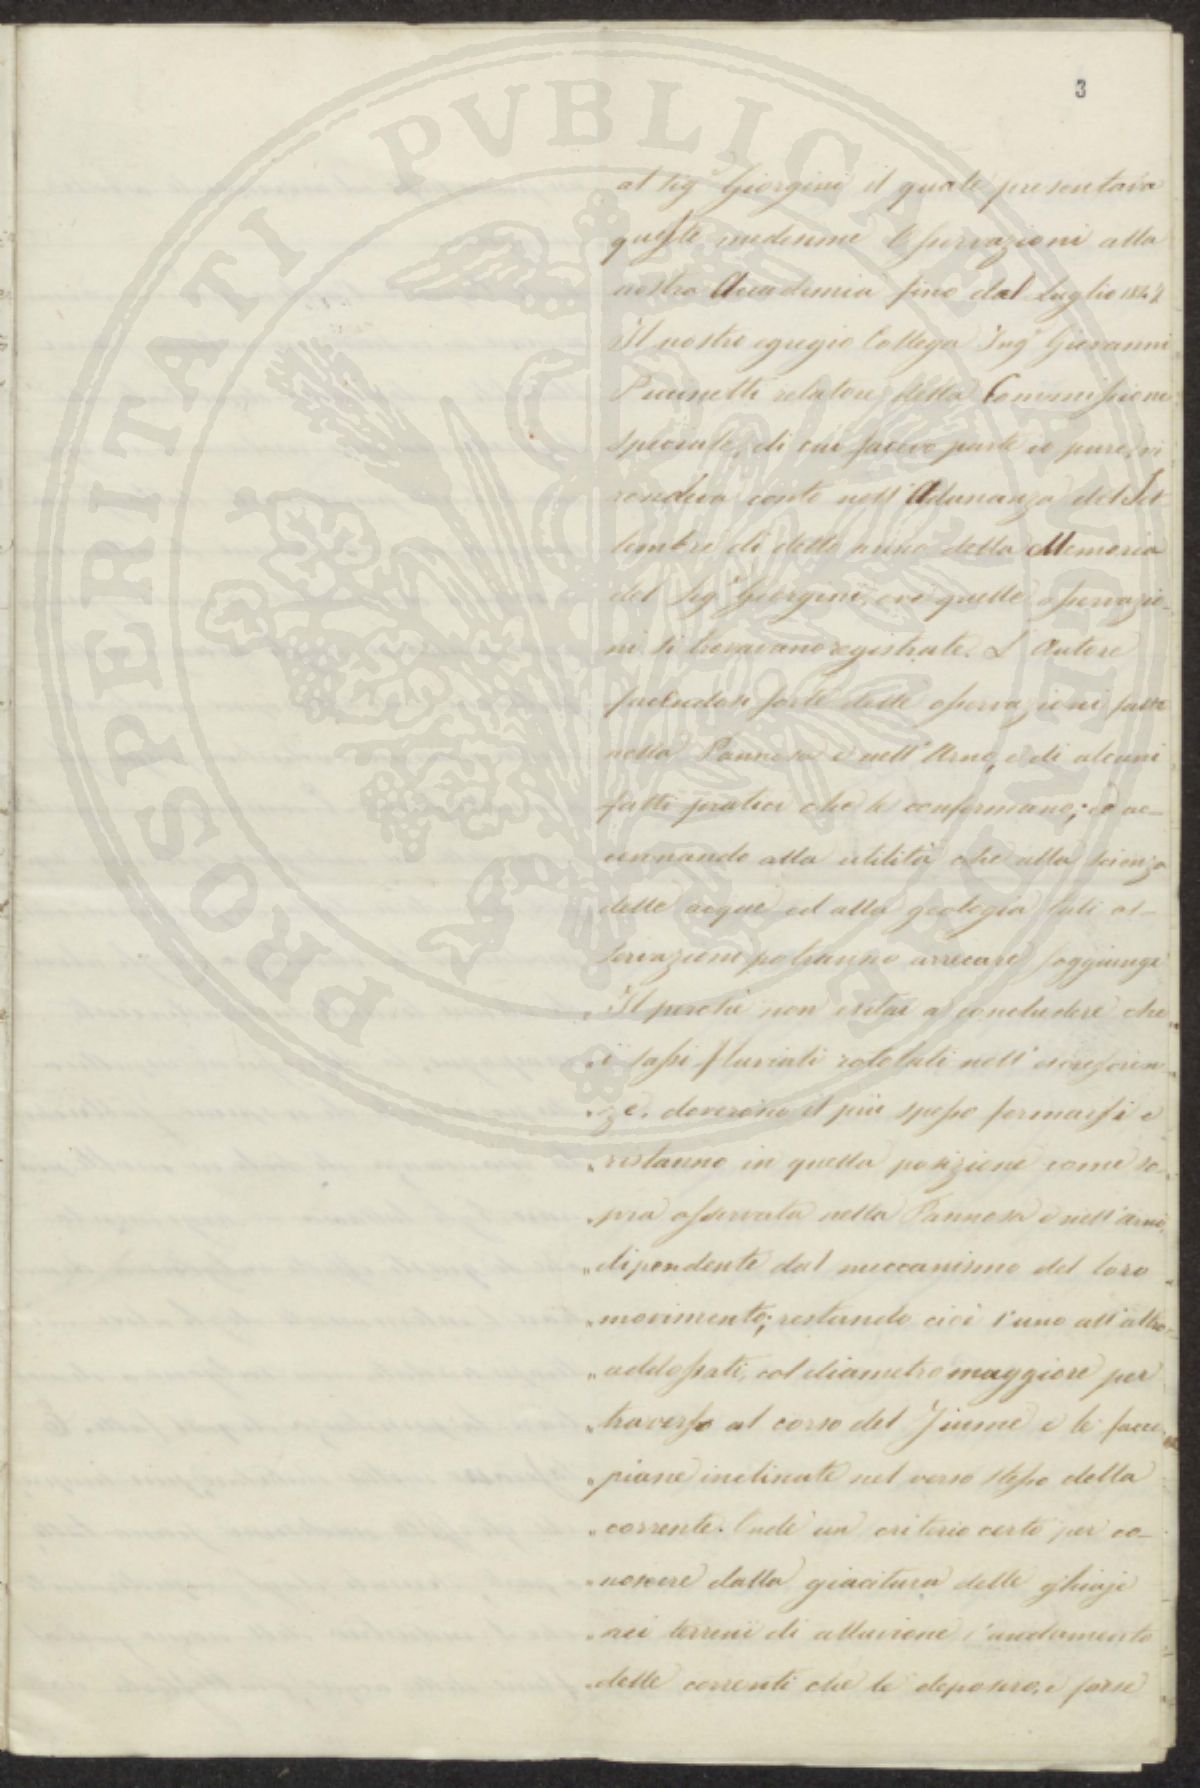 3
al Sig.r Giorgini il quale presentava
queste medesime Osservazioni alla
nostra Accademia fino dal Luglio 184
Il nostro egregio Collega Ing.e Giovanni
Puccinelli relatore della Commissione
speciale, di cui facevo parte io pure, vi
rendeva conto nell'Adunanza del Set
tembre di detto anno della Memoria
del Sig.r Giorgini, ove quelle osservazio-
ni si trovavano registrate. L'Autore
facendosi forte delle osservazioni fatte
nella Pannosa e nell'Arno, e di alcuni
fatti pratici che le confermano; ed ac-
cennando alla utilità che alla scienza
delle acque ed alla geologia tali os-
servazioni potranno arrecare soggiunge
„Il perchè non esitai a concludere che
„i sassi fluviali rotolati nell'escrescen-
„ze, doverono il più spesso formarsi e
„ristanno in quella posizione come so-
„pra osservata nella Pannosa e nell'Arno,
„dipendente dal meccanismo del loro
„movimento; restando cioè l'uno all'altro
„addossati, col diametro maggiore per
„traverso al corso del Fiume e le facce
„piane inclinate nel verso stesso della
„corrente. Onde un criterio certo per co-
„noscere dalla giacitura delle ghiaje
„nei terreni di alluvione l'andamento
„delle correnti che le deposero, e forse
PROSPERITATI PVBLICAE AVGENDAE